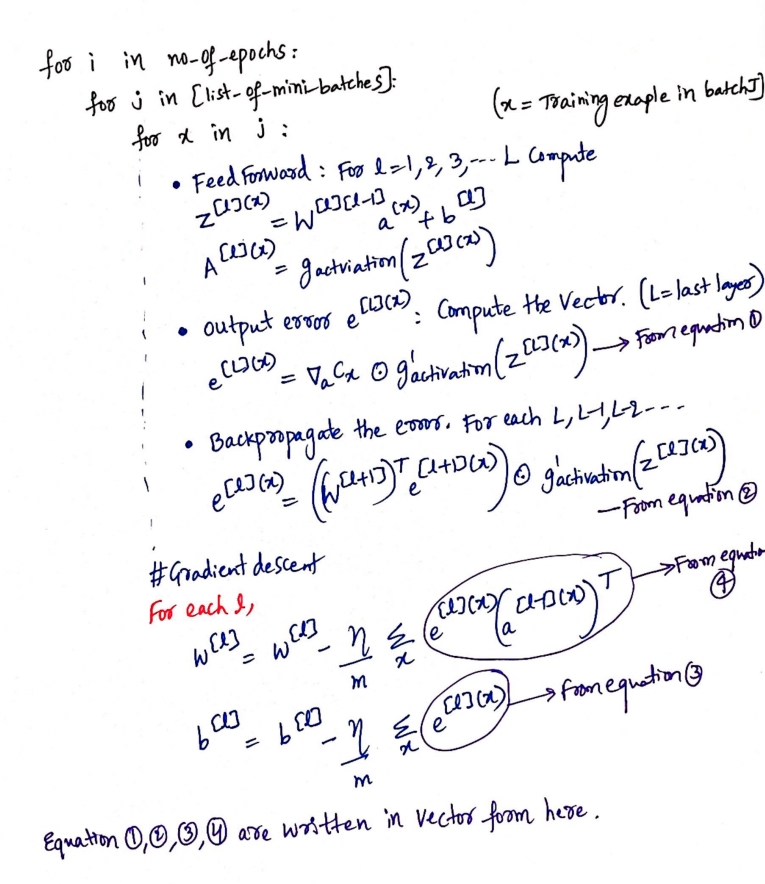 for i in no-of-epochs:
for j in [list-of-mini-batches]:
for x in j : (x = Training exaple in batchJ]
• Feed Forward : For l=1,2,3,--- L Compute
z^{[l](x)} = W^{[l][l-1]} a^{(x)} + b^{[l]}
A^{[l](x)} = gactviation(z^{[l](x)})
• output error e^{[L](x)} : Compute the Vector. (L=last layer)
e^{[L](x)} = ∇_a C_x ⊙ g'activation(z^{[L](x)}) → From equation ①
• Backpropagate the error. For each L, L-1, L-2 ---
e^{[l](x)} = ((W^{[l+1]})^T e^{[l+1](x)}) ⊙ g'activation(z^{[l](x)})
— From equation ②
# Gradient descent
For each l,
w^{[l]} = w^{[l]} - η/m Σ_x e^{[l](x)} (a^{[l-1](x)})^T → From equation ④
b^{[l]} = b^{[l]} - η/m Σ_x e^{[l](x)} → from equation ③
Equation ①,②,③,④ are written in vector form here.